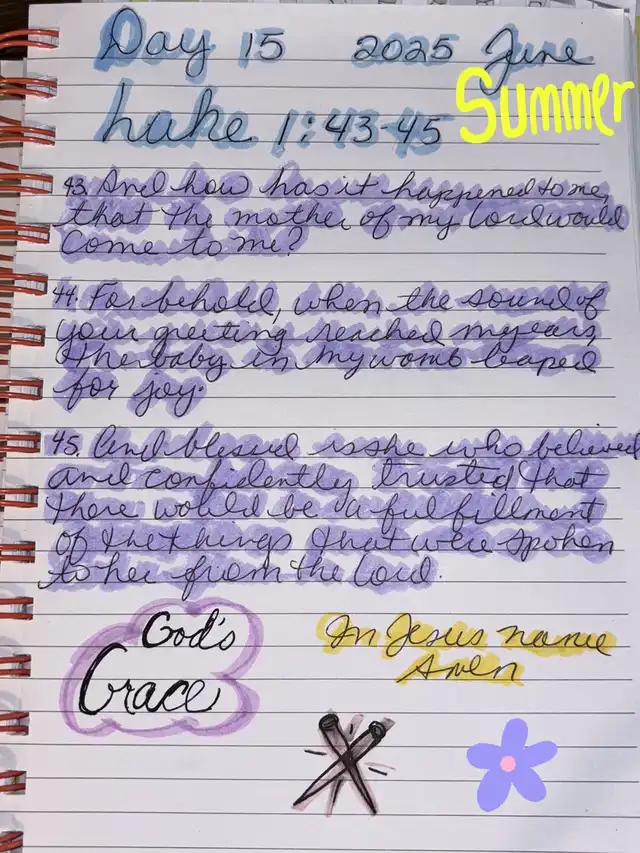 Day 15 2025 June
Summer
Luke 1:43-45
43. And how has it happened to me,
that the mother of my Lord would
come to me?
44. For behold, when the sound of
your greeting reached my ears,
the baby in my womb leaped
for joy.
45. And blessed is she who believed
and confidently trusted that
there would be a fulfillment
of the things that were spoken
to her from the Lord.
God's
Grace
In Jesus name
Amen